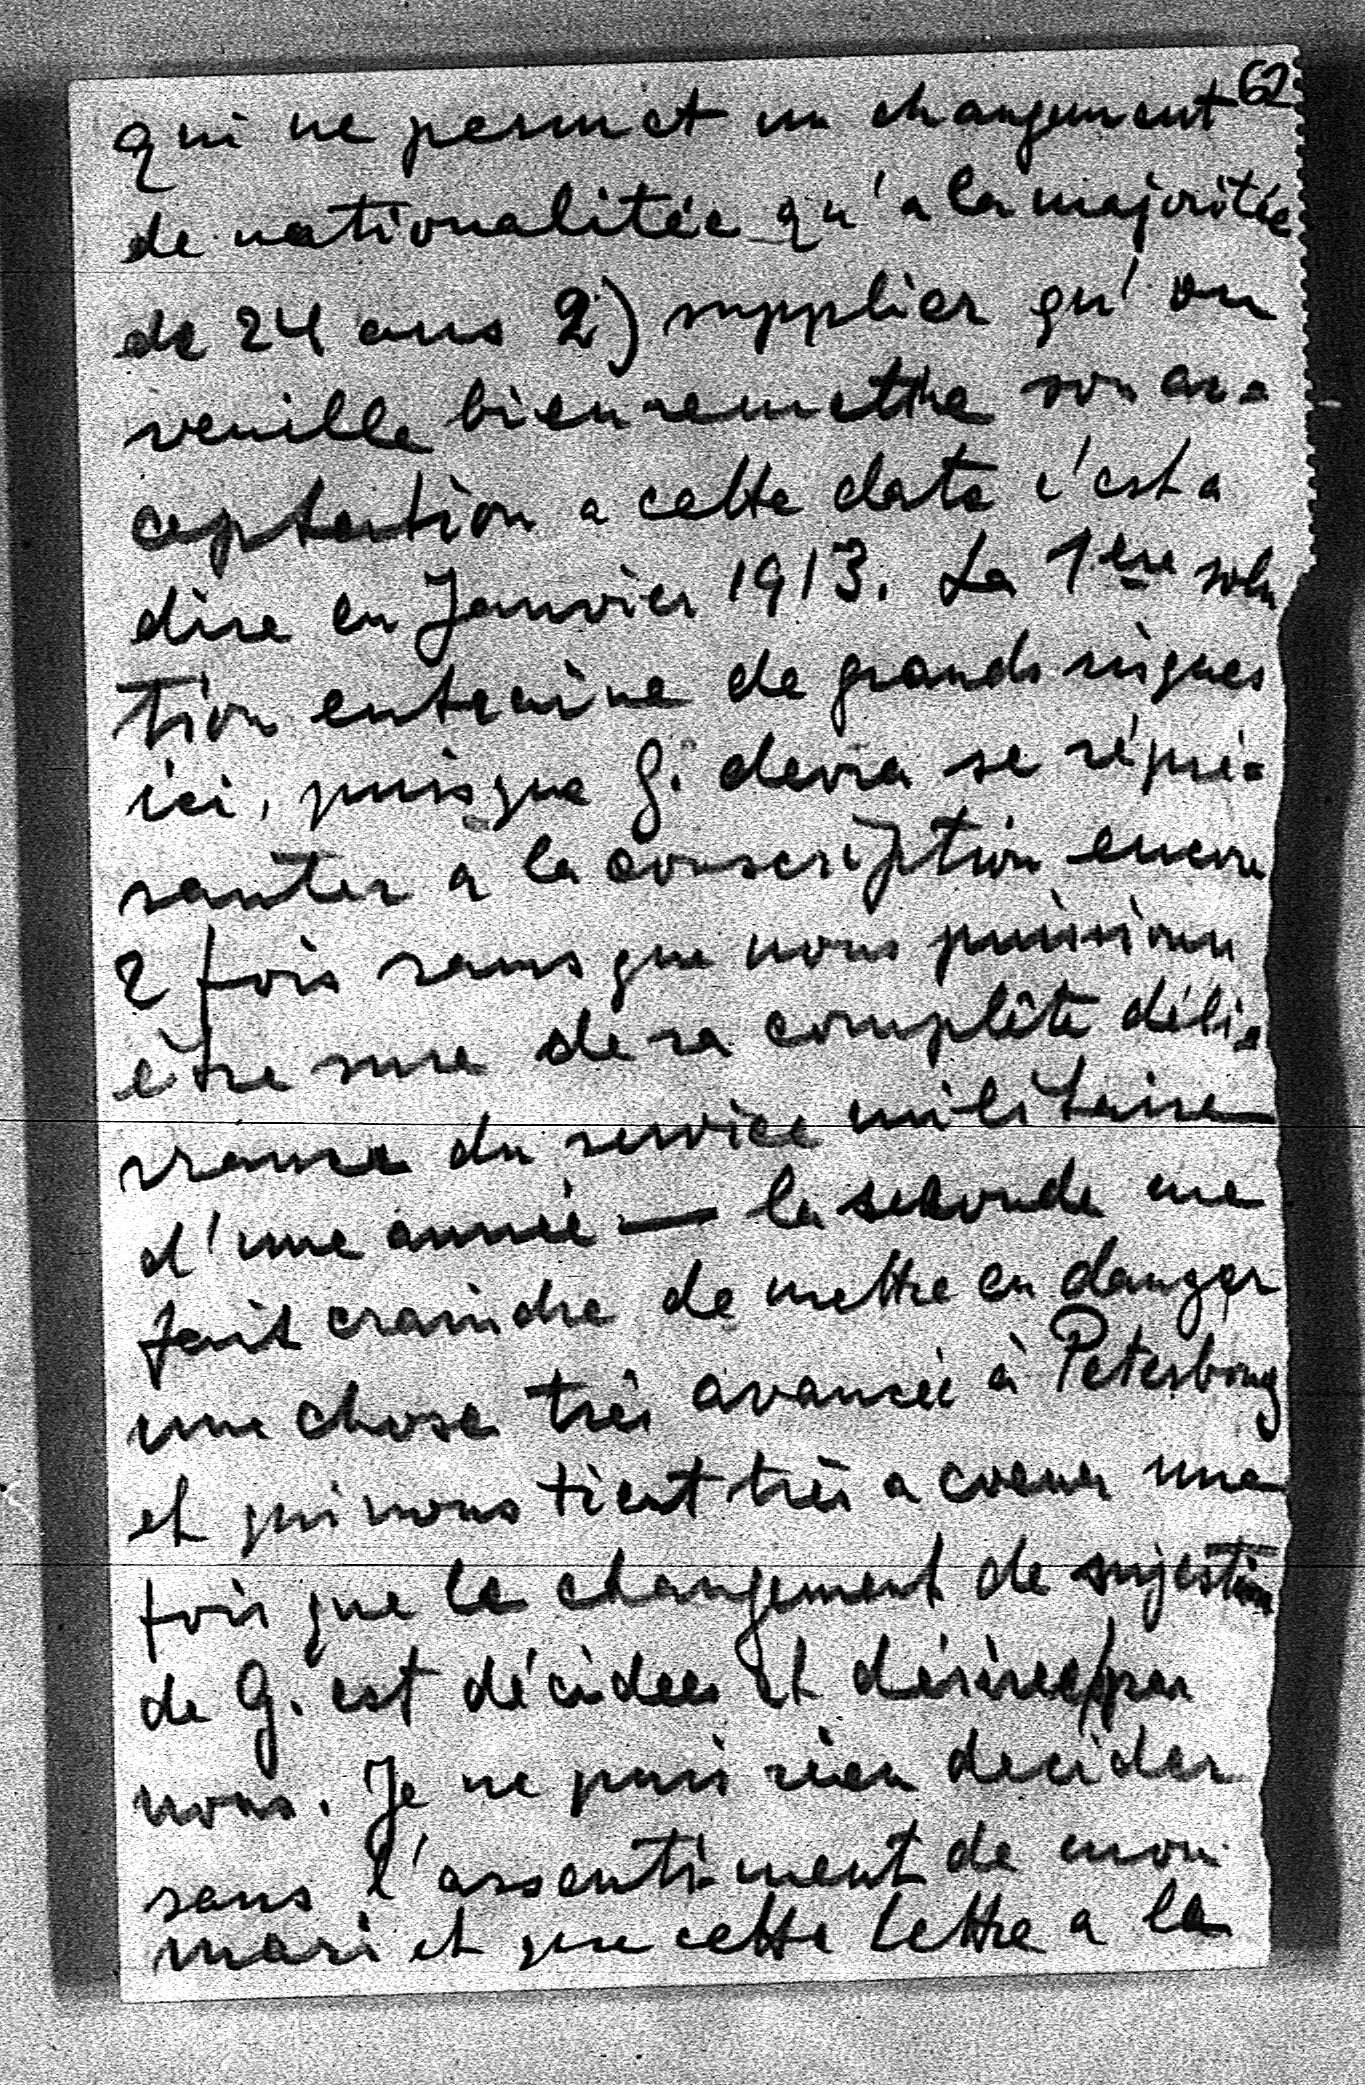 62
qui ne permet un changement
de nationalitée qu'a la majoritée
de 24 ans 2) supplier qu'on
veuille bien remettre son ac-
ceptertion a cette date c'est a
dire en Janvier 1913. La 1ère solu
tion entraine de grands risques
ici, puisque G. devra se répré-
santer a la conscription encore
2 fois sans que nous puissions
être sure de sa complête déli-
vrance du service militaire
d'une année — la seconde me
fait craindre de mettre en danger
une chose très avancée à Petersbourg
et qui nous tient très a coeur une
fois que le changement de sujestion
de G. est décidee et désiree par
nous. Je ne puis rien decider
sans l'assentiment de mon
mari et que cette lettre a la